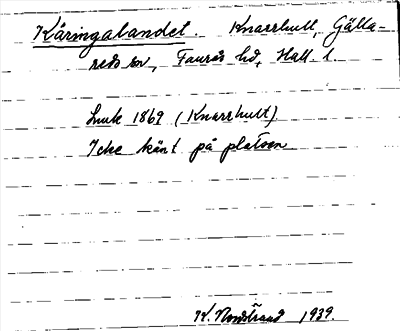 Käringalandet. Knarrhult, Gälla-
reds sn, Faurås hd, Hall. l.
Lmk 1869 (Knarrhult)
Icke känt på platsen
K. Nordstrand 1939.